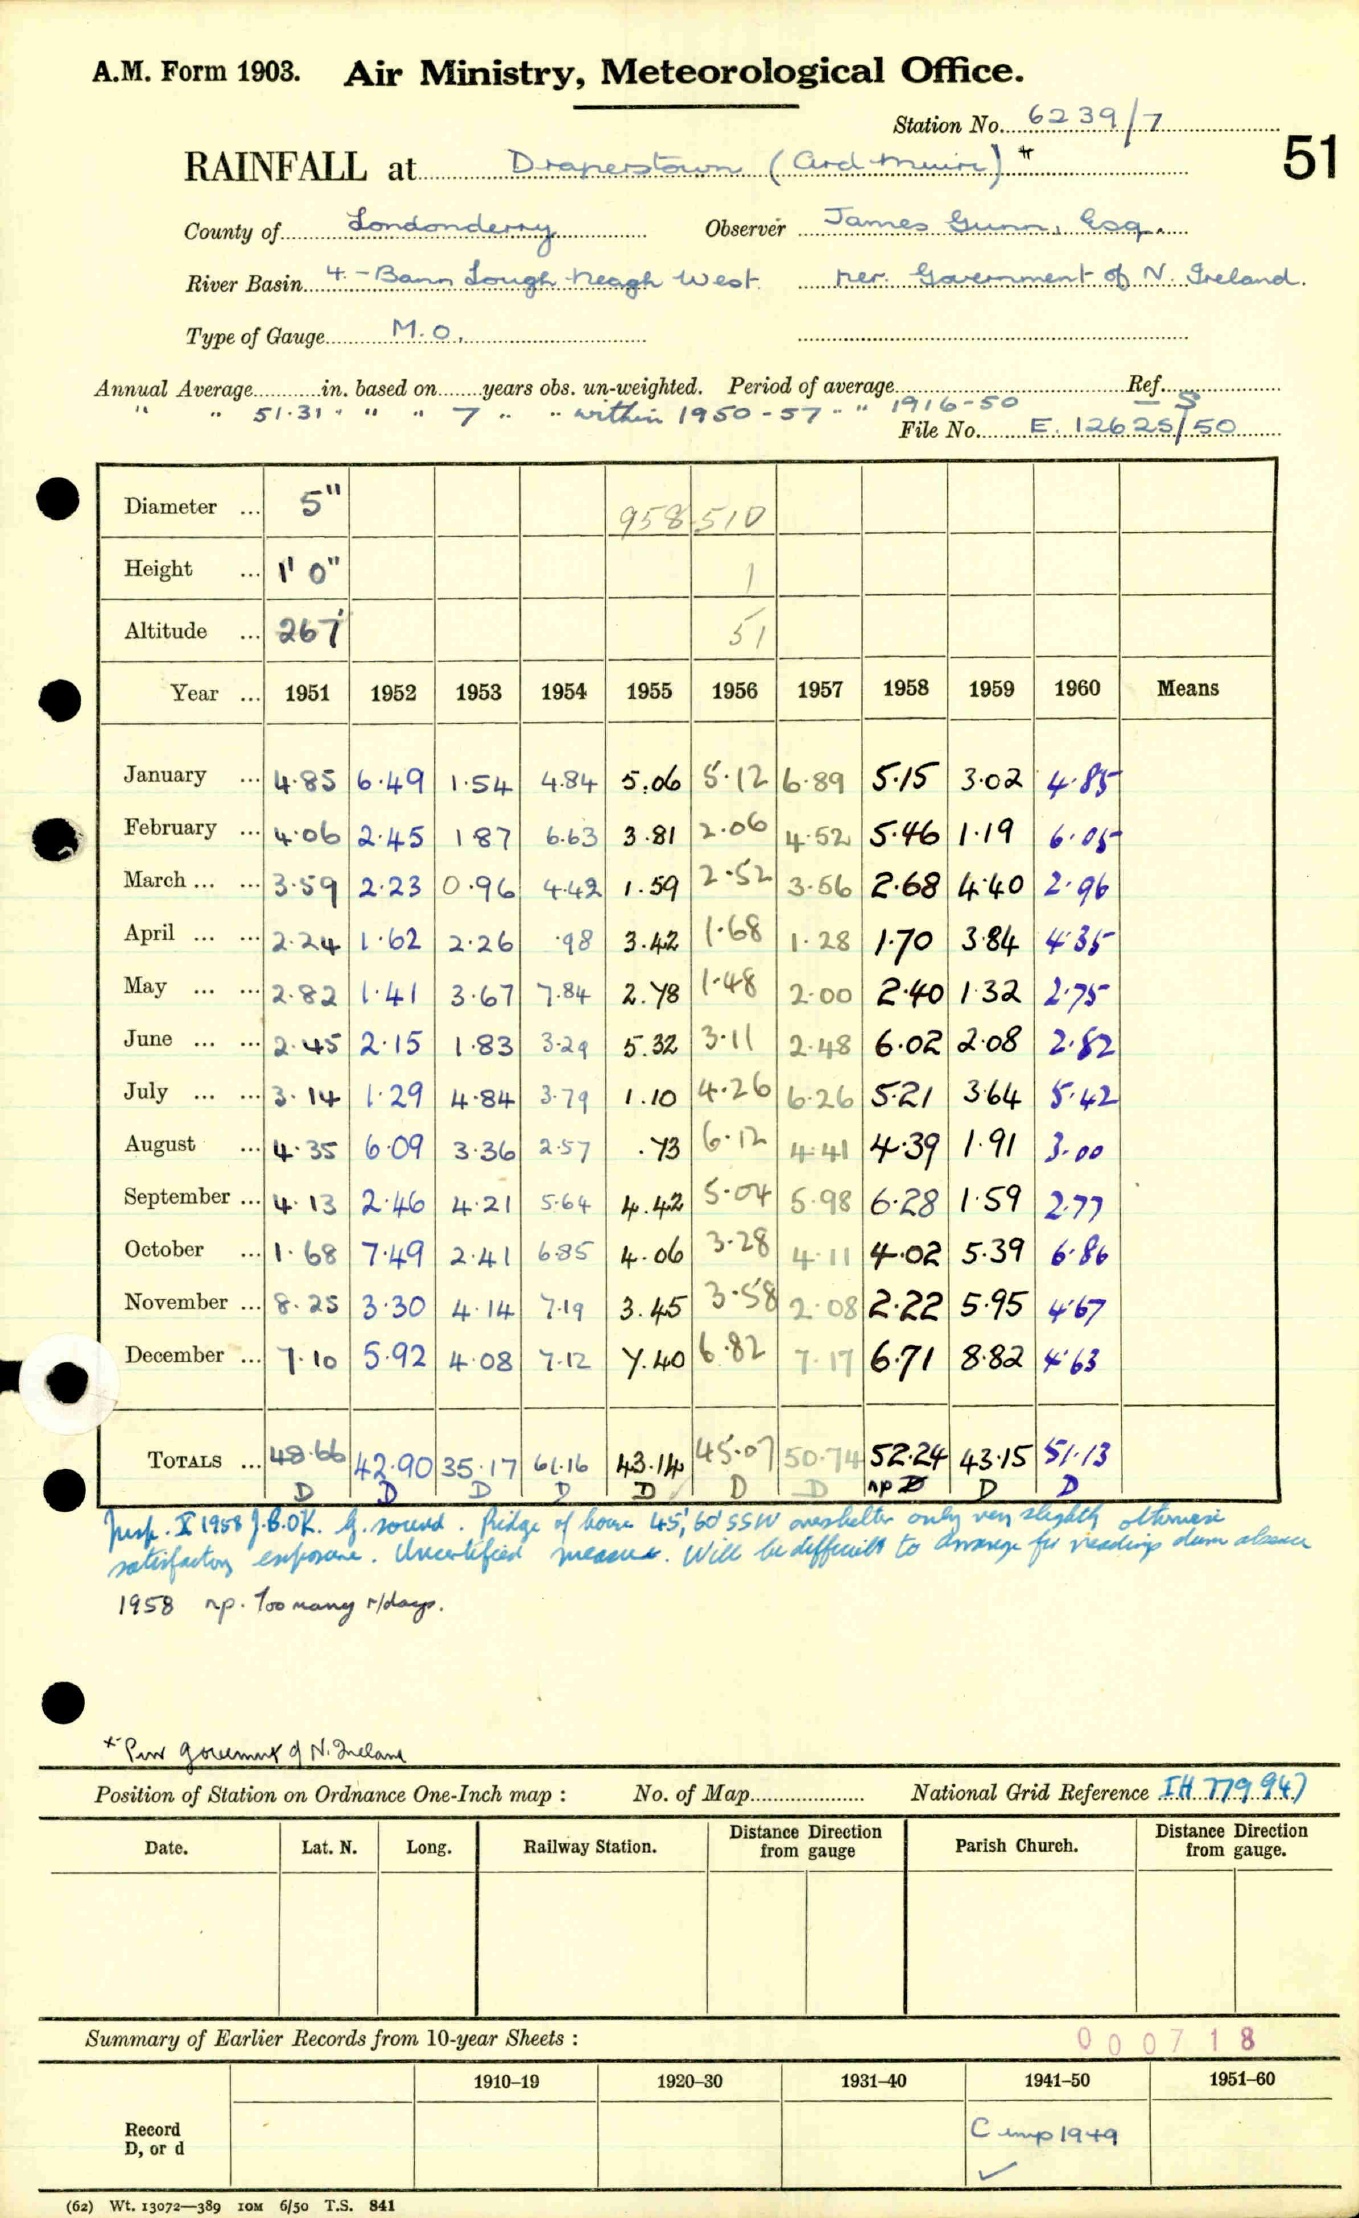 A.M. Form 1903. Air Ministry, Meteorological Office.
Station No. 6239/7
RAINFALL at Draperstown (Ard-Muire) *
51
County of Londonderry Observer James Gunn, Esq.
River Basin 4.-Bann Lough Neagh West. per. Government of N. Ireland.
Type of Gauge M.O.
Annual Average in. based on years obs. un-weighted. Period of average Ref.
" " 51.31 " " " 7 " " within 1950-57 " " 1916-50 - S
File No. E. 12625/50
Diameter ... 5" 958 510
Height ... 1' 0" 1
Altitude ... 267' 51
Year ... 1951 1952 1953 1954 1955 1956 1957 1958 1959 1960 Means
January ... 4.85 6.49 1.54 4.84 5.06 5.12 6.89 5.15 3.02 4.85
February ... 4.06 2.45 1.87 6.63 3.81 2.06 4.52 5.46 1.19 6.05
March ... ... 3.59 2.23 0.96 4.42 1.59 2.52 3.56 2.68 4.40 2.96
April ... ... 2.24 1.62 2.26 .98 3.42 1.68 1.28 1.70 3.84 4.35
May ... ... 2.82 1.41 3.67 7.84 2.78 1.48 2.00 2.40 1.32 2.75
June ... ... 2.45 2.15 1.83 3.29 5.32 3.11 2.48 6.02 2.08 2.82
July ... ... 3.14 1.29 4.84 3.79 1.10 4.26 6.26 5.21 3.64 5.42
August ... 4.35 6.09 3.36 2.57 .73 6.12 4.41 4.39 1.91 3.00
September ... 4.13 2.46 4.21 5.64 4.42 5.04 5.98 6.28 1.59 2.77
October ... 1.68 7.49 2.41 6.85 4.06 3.28 4.11 4.02 5.39 6.86
November ... 8.25 3.30 4.14 7.19 3.45 3.58 2.08 2.22 5.95 4.67
December ... 7.10 5.92 4.08 7.12 7.40 6.82 7.17 6.71 8.82 4.63
TOTALS ... 48.66 42.90 35.17 61.16 43.14 45.07 50.74 52.24 43.15 51.13
D D D D D D D np D D D
Insp. X 1958 J.B.OK. G. sound. Ridge of house 45', 60' SSW overshelter only very slightly otherwise
satisfactory exposure. Uncertified measure. Will be difficult to arrange for readings during absence
1958 np. Too many r/days.
* Per Government of N. Ireland
Position of Station on Ordnance One-Inch map : No. of Map National Grid Reference IH 779 947
Date. Lat. N. Long. Railway Station. Distance Direction from gauge Parish Church. Distance Direction from gauge.
Summary of Earlier Records from 10-year Sheets : 000718
1910–19 1920–30 1931–40 1941–50 1951–60
Record
D, or d
C imp 1949
✓
(62) Wt. 13072—389 10M 6/50 T.S. 841